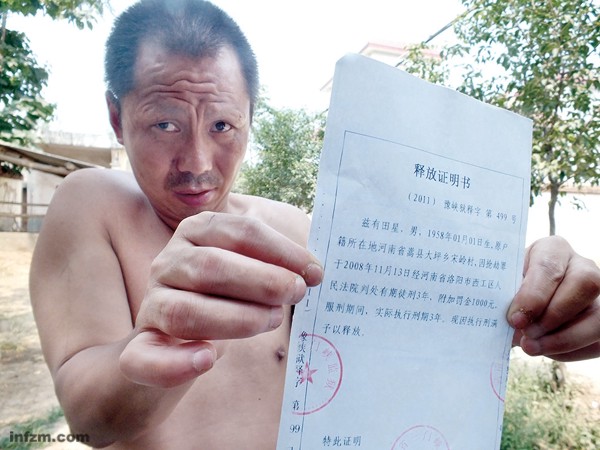 释放证明书
（2011）豫峡狱释字 第 499 号
兹有田星，男，1958年01月01日生，原户
籍所在地河南省嵩县大坪乡宋岭村，因抢劫罪
于2008年11月13日经河南省洛阳市西工区人
民法院判处有期徒刑3年、附加罚金1000元。
服刑期间，实际执行刑期3年。现因执行刑满
予以释放。
特此证明
infzm.com